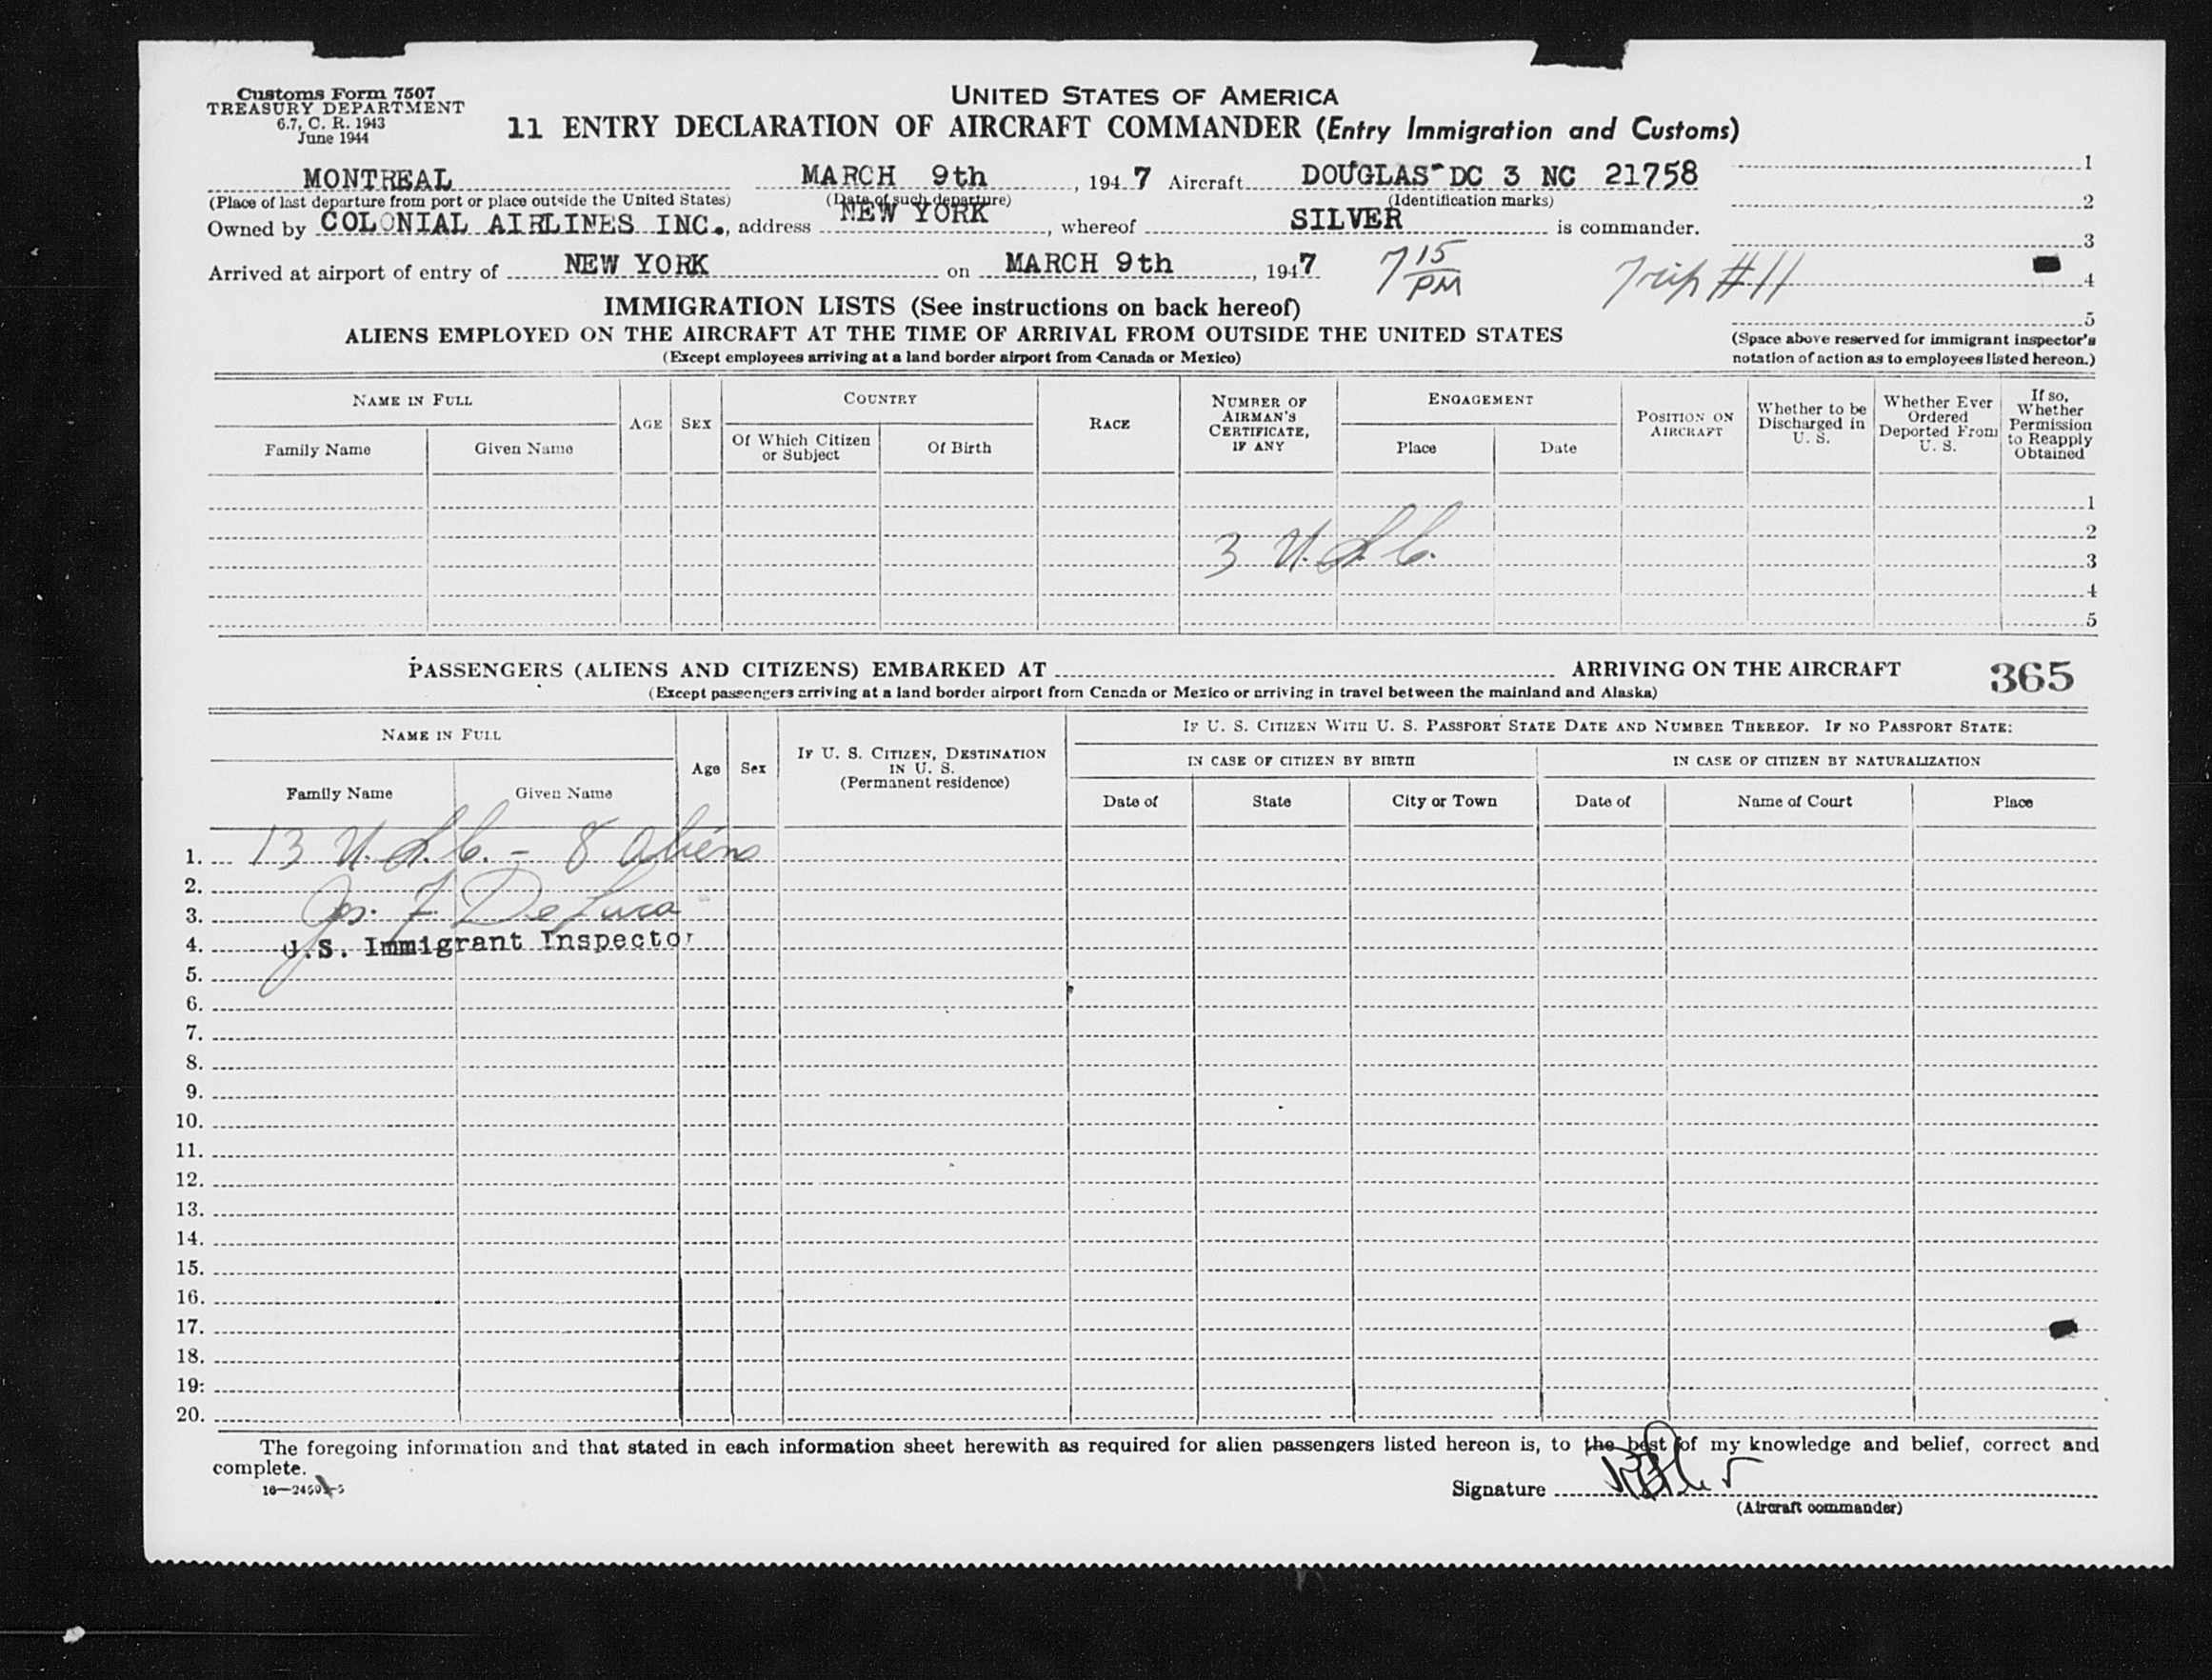 Customs Form 7507
TREASURY DEPARTMENT
6.7, C. R. 1943
June 1944
UNITED STATES OF AMERICA
11 ENTRY DECLARATION OF AIRCRAFT COMMANDER (Entry Immigration and Customs)
MONTREAL MARCH 9th, 1947 Aircraft DOUGLAS DC 3 NC 21758
(Place of last departure from port or place outside the United States) (Date of such departure) (Identification marks)
Owned by COLONIAL AIRLINES INC., address NEW YORK, whereof SILVER is commander.
Arrived at airport of entry of NEW YORK on MARCH 9th, 1947 7 15 PM Trip #11
1
2
3
4
5
(Space above reserved for immigrant inspector's
notation of action as to employees listed hereon.)
IMMIGRATION LISTS (See instructions on back hereof)
ALIENS EMPLOYED ON THE AIRCRAFT AT THE TIME OF ARRIVAL FROM OUTSIDE THE UNITED STATES
(Except employees arriving at a land border airport from Canada or Mexico)
NAME IN FULL
Family Name Given Name
AGE SEX
COUNTRY
Of Which Citizen or Subject Of Birth
RACE
NUMBER OF AIRMAN'S CERTIFICATE, IF ANY
ENGAGEMENT
Place Date
POSITION ON AIRCRAFT
Whether to be Discharged in U. S.
Whether Ever Ordered Deported From U. S.
If so, Whether Permission to Reapply Obtained
1
2
3 U.S.C.
3
4
5
PASSENGERS (ALIENS AND CITIZENS) EMBARKED AT ARRIVING ON THE AIRCRAFT 365
(Except passengers arriving at a land border airport from Canada or Mexico or arriving in travel between the mainland and Alaska)
NAME IN FULL
Family Name Given Name
Age Sex
IF U. S. CITIZEN, DESTINATION IN U. S.
(Permanent residence)
IF U. S. CITIZEN WITH U. S. PASSPORT STATE DATE AND NUMBER THEREOF. IF NO PASSPORT STATE:
IN CASE OF CITIZEN BY BIRTH IN CASE OF CITIZEN BY NATURALIZATION
Date of State City or Town Date of Name of Court Place
1. 13 U.S.C. - 8 Aliens
2.
3. Jos. F. DeLuca
4. U.S. Immigrant Inspector
5.
6.
7.
8.
9.
10.
11.
12.
13.
14.
15.
16.
17.
18.
19.
20.
The foregoing information and that stated in each information sheet herewith as required for alien passengers listed hereon is, to the best of my knowledge and belief, correct and
complete.
Signature
(Aircraft commander)